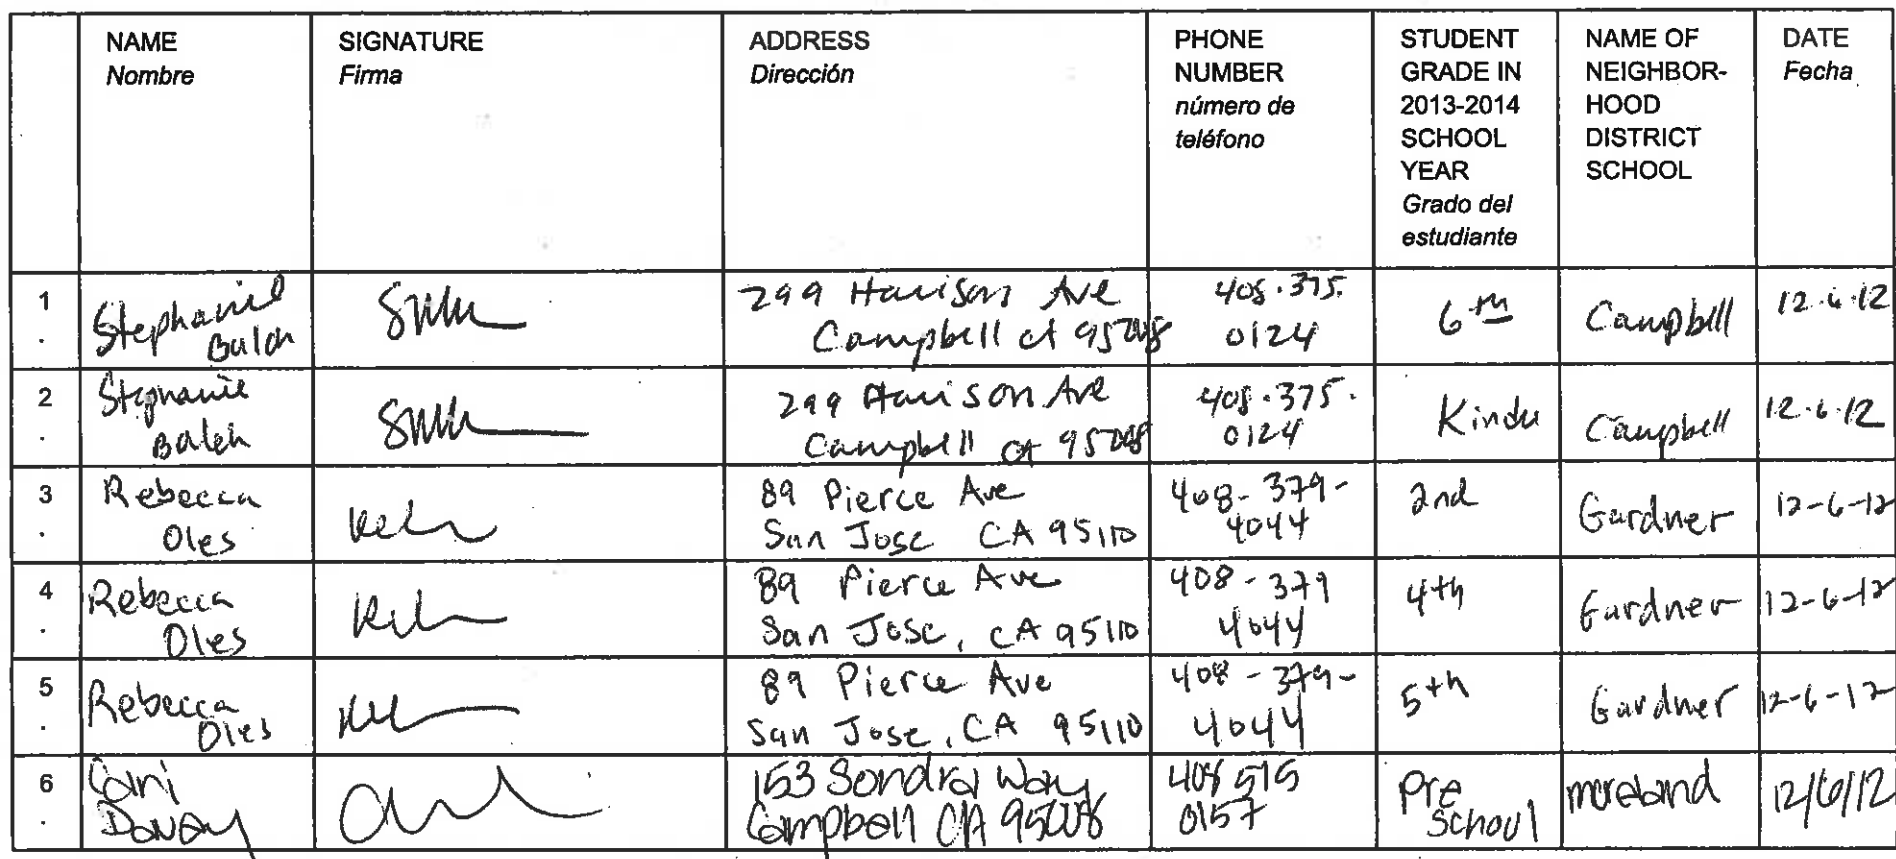 NAME
Nombre
SIGNATURE
Firma
ADDRESS
Dirección
PHONE
NUMBER
número de
teléfono
STUDENT
GRADE IN
2013-2014
SCHOOL
YEAR
Grado del
estudiante
NAME OF
NEIGHBOR-
HOOD
DISTRICT
SCHOOL
DATE
Fecha
1
.
Stephanie
Balch
299 Harrison Ave
Campbell CA 95008
408.375.
0124
6th
Campbell
12.6.12
2
.
Stephanie
Balch
299 Harrison Ave
Campbell CA 95008
408.375.
0124
Kinder
Campbell
12.6.12
3
.
Rebecca
Oles
89 Pierce Ave
San Jose CA 95110
408-379-
4044
2nd
Gardner
12-6-12
4
.
Rebecca
Oles
89 Pierce Ave
San Jose, CA 95110
408-379
4044
4th
Gardner
12-6-12
5
.
Rebecca
Oles
89 Pierce Ave
San Jose, CA 95110
408-379-
4044
5th
Gardner
12-6-12
6
.
Cari
153 Sondra Way
Campbell CA 95008
408 515
0157
Pre
School
moreland
12/6/12